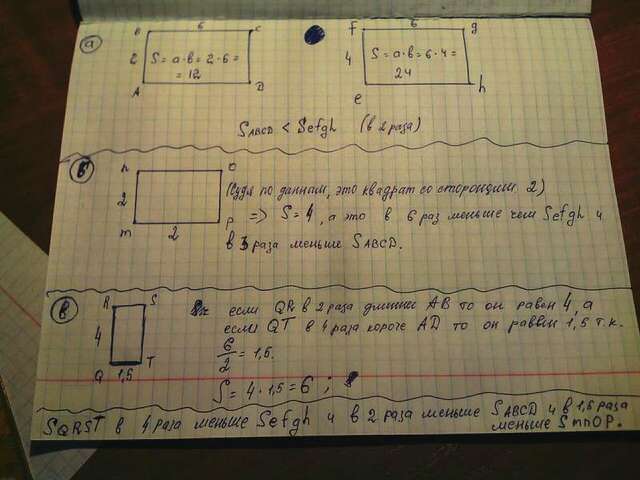 а
B 6 C
f 6 g
2 S = a·b = 2·6 =
= 12
4 S = a·b = 6·4 =
24
A D
e h
SABCD < Sefgh (в 2 раза)
n O
2
(Судя по данным, это квадрат со сторонами 2)
m 2 P
=> S = 4, а это в 6 раз меньше чем Sefgh и
в 3 раза меньше SABCD.
в
R S
4
Q 1,5 T
если QR в 2 раза длинне AB то он равен 4, а
если QT в 4 раза короче AD то он раввен 1,5 т.к.
6/2 = 1,5.
S = 4·1,5 = 6 ;
SQRST в 4 раза меньше Sefgh и в 2 раза меньше SABCD и в 1,5 раза
меньше SmnOP.